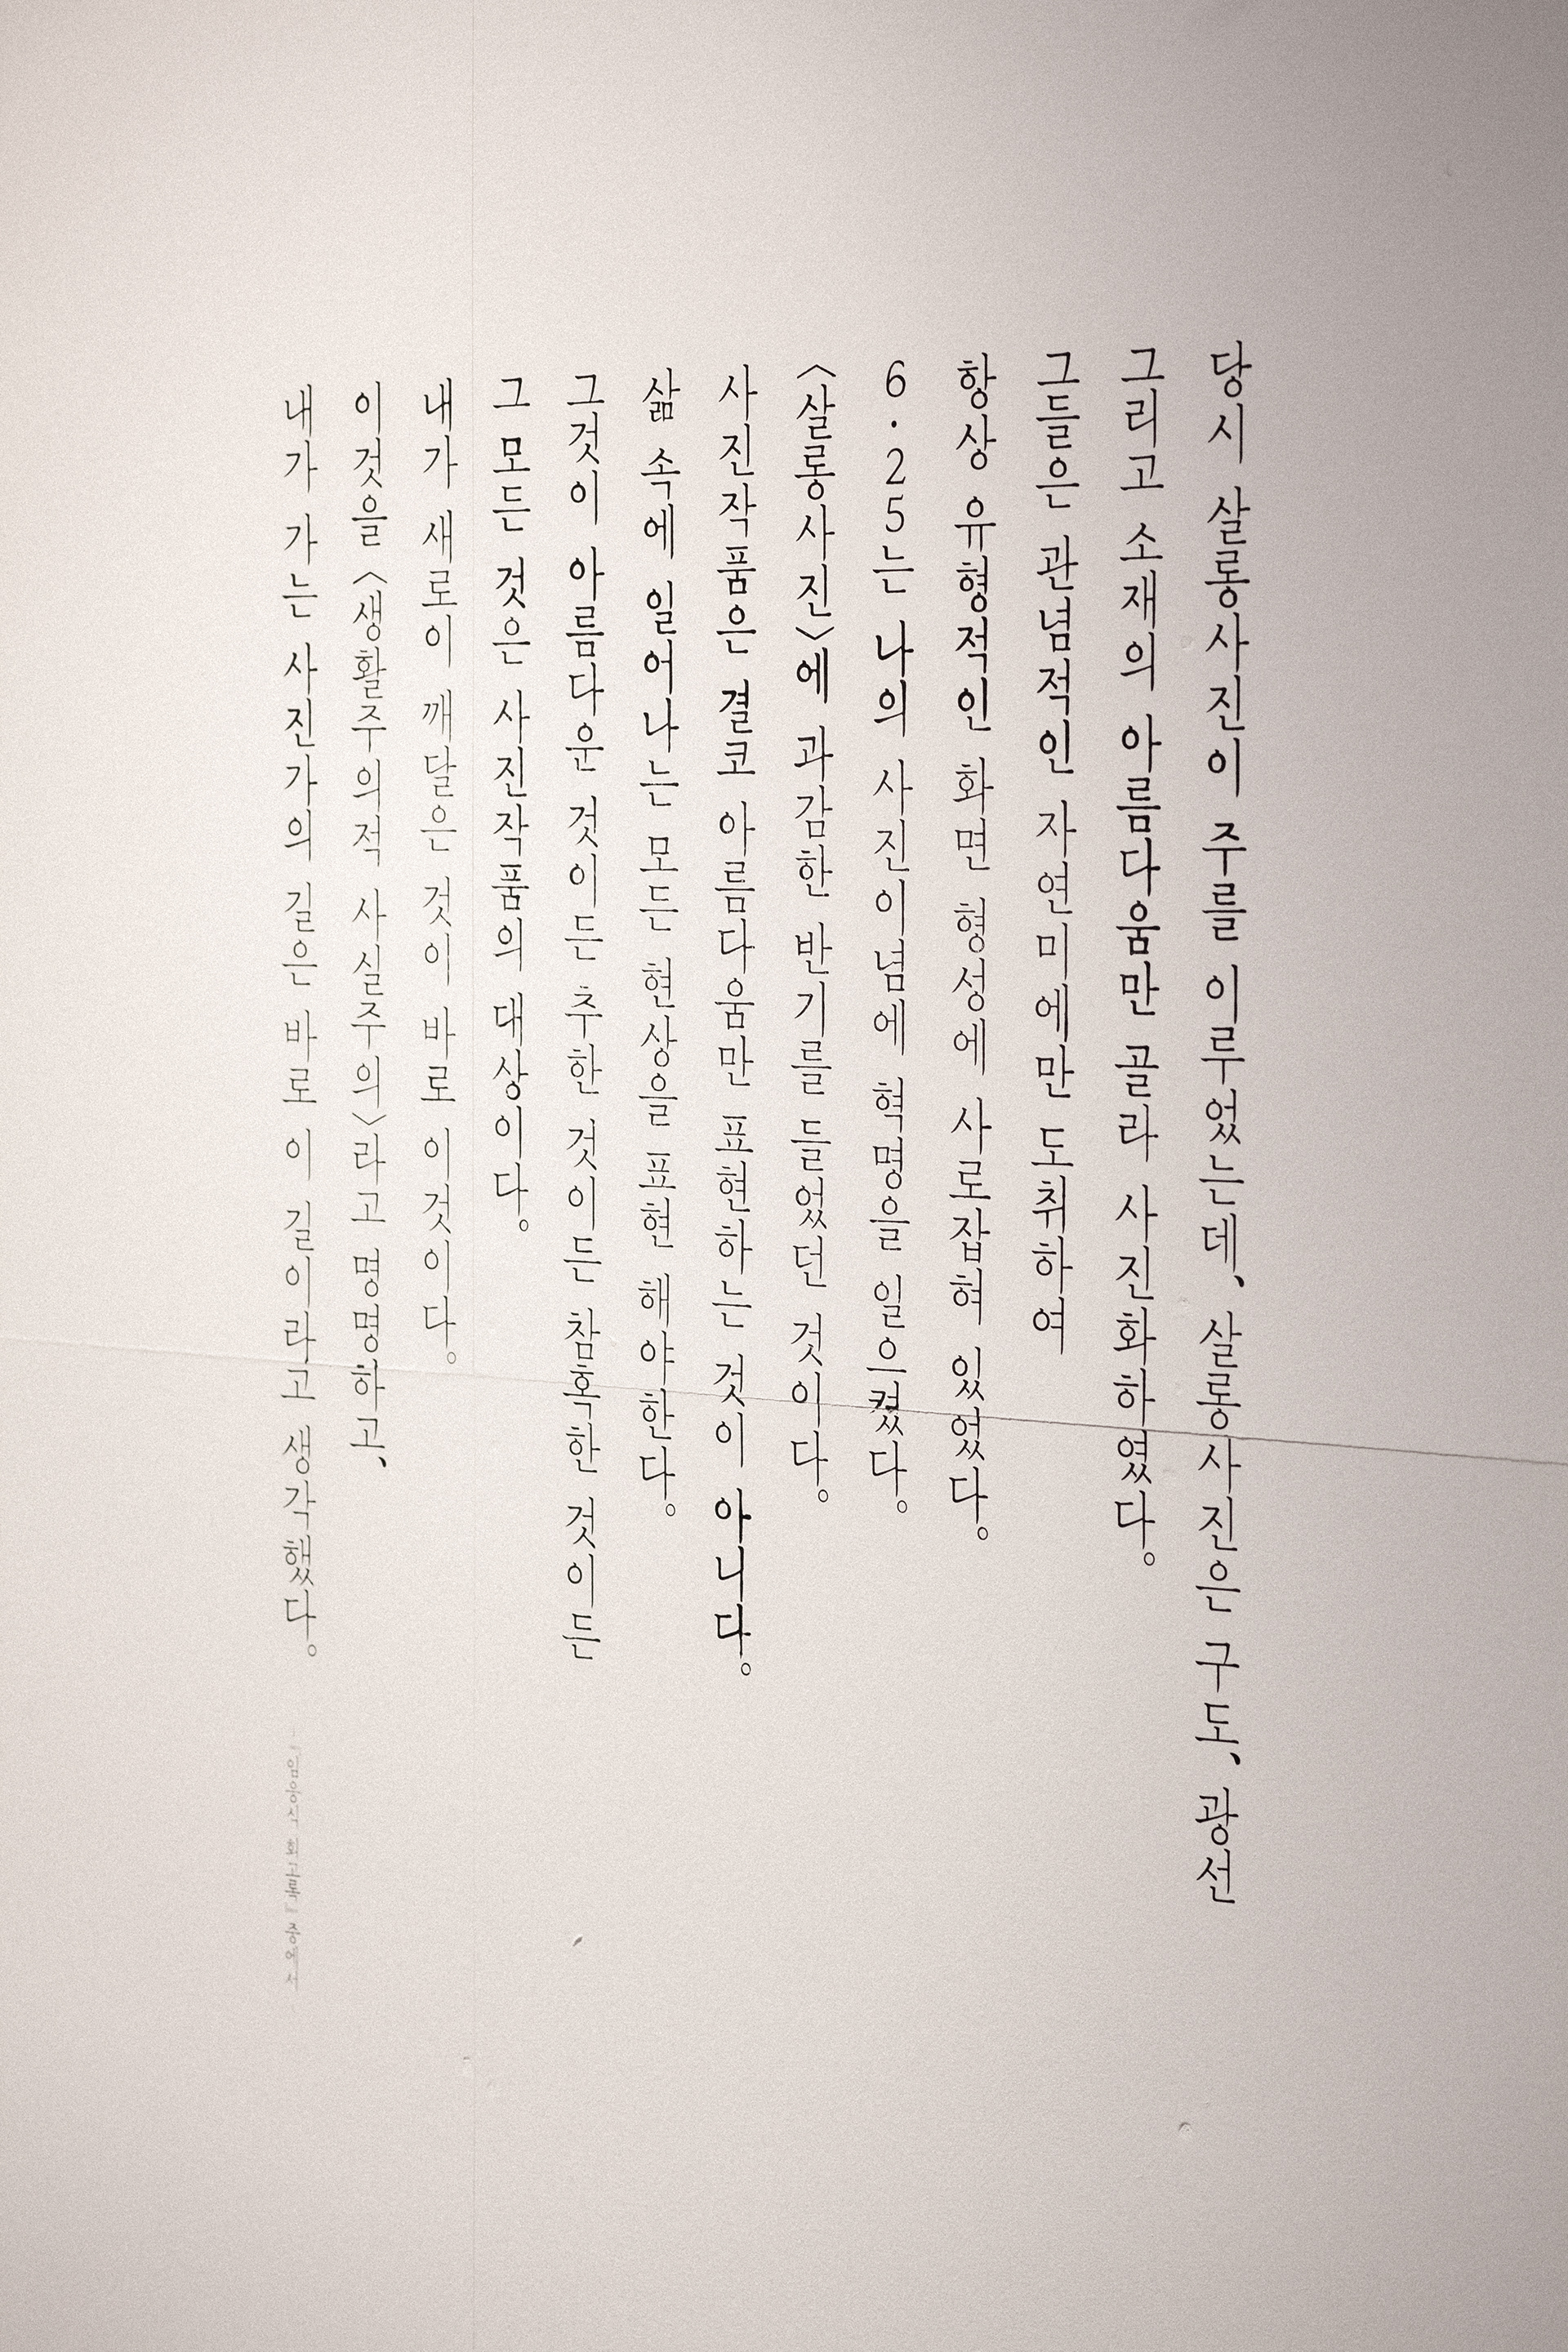 당시 살롱사진이 주를 이루었는데, 살롱사진은 구도, 광선
그리고 소재의 아름다움만 골라 사진화하였다.
그들은 관념적인 자연미에만 도취하여
항상 유형적인 화면 형성에 사로잡혀 있었다.
6·25는 나의 사진이념에 혁명을 일으켰다.
<살롱사진>에 과감한 반기를 들었던 것이다.
사진작품은 결코 아름다움만 표현하는 것이 아니다.
삶 속에 일어나는 모든 현상을 표현 해야 한다.
그것이 아름다운 것이든 추한 것이든 참혹한 것이든
그 모든 것은 사진작품의 대상이다.
내가 새로이 깨달은 것이 바로 이것이다.
이것을 <생활주의적 사실주의>라고 명명하고,
내가 가는 사진가의 길은 바로 이 길이라고 생각했다.
『임응식 회고록』 중에서